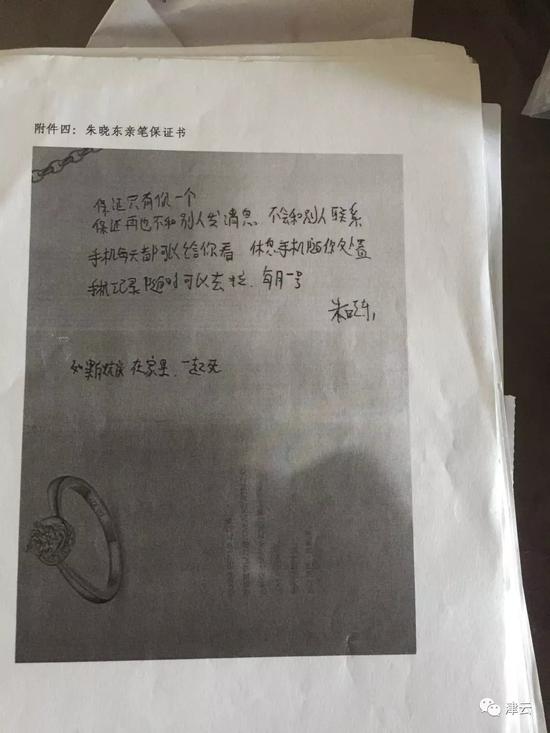 附件四：朱晓东亲笔保证书
保证只有你一个
保证再也不和别人发消息 不会和别人联系
手机每天都可以给你看 休息手机随你处置
手机记录随时可以去拉、每月一号
朱晓东
如果有在家里、一起死
津云